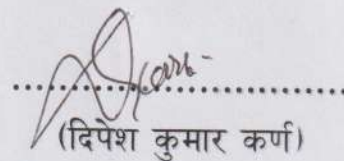 (दिपेश कुमार कर्ण)